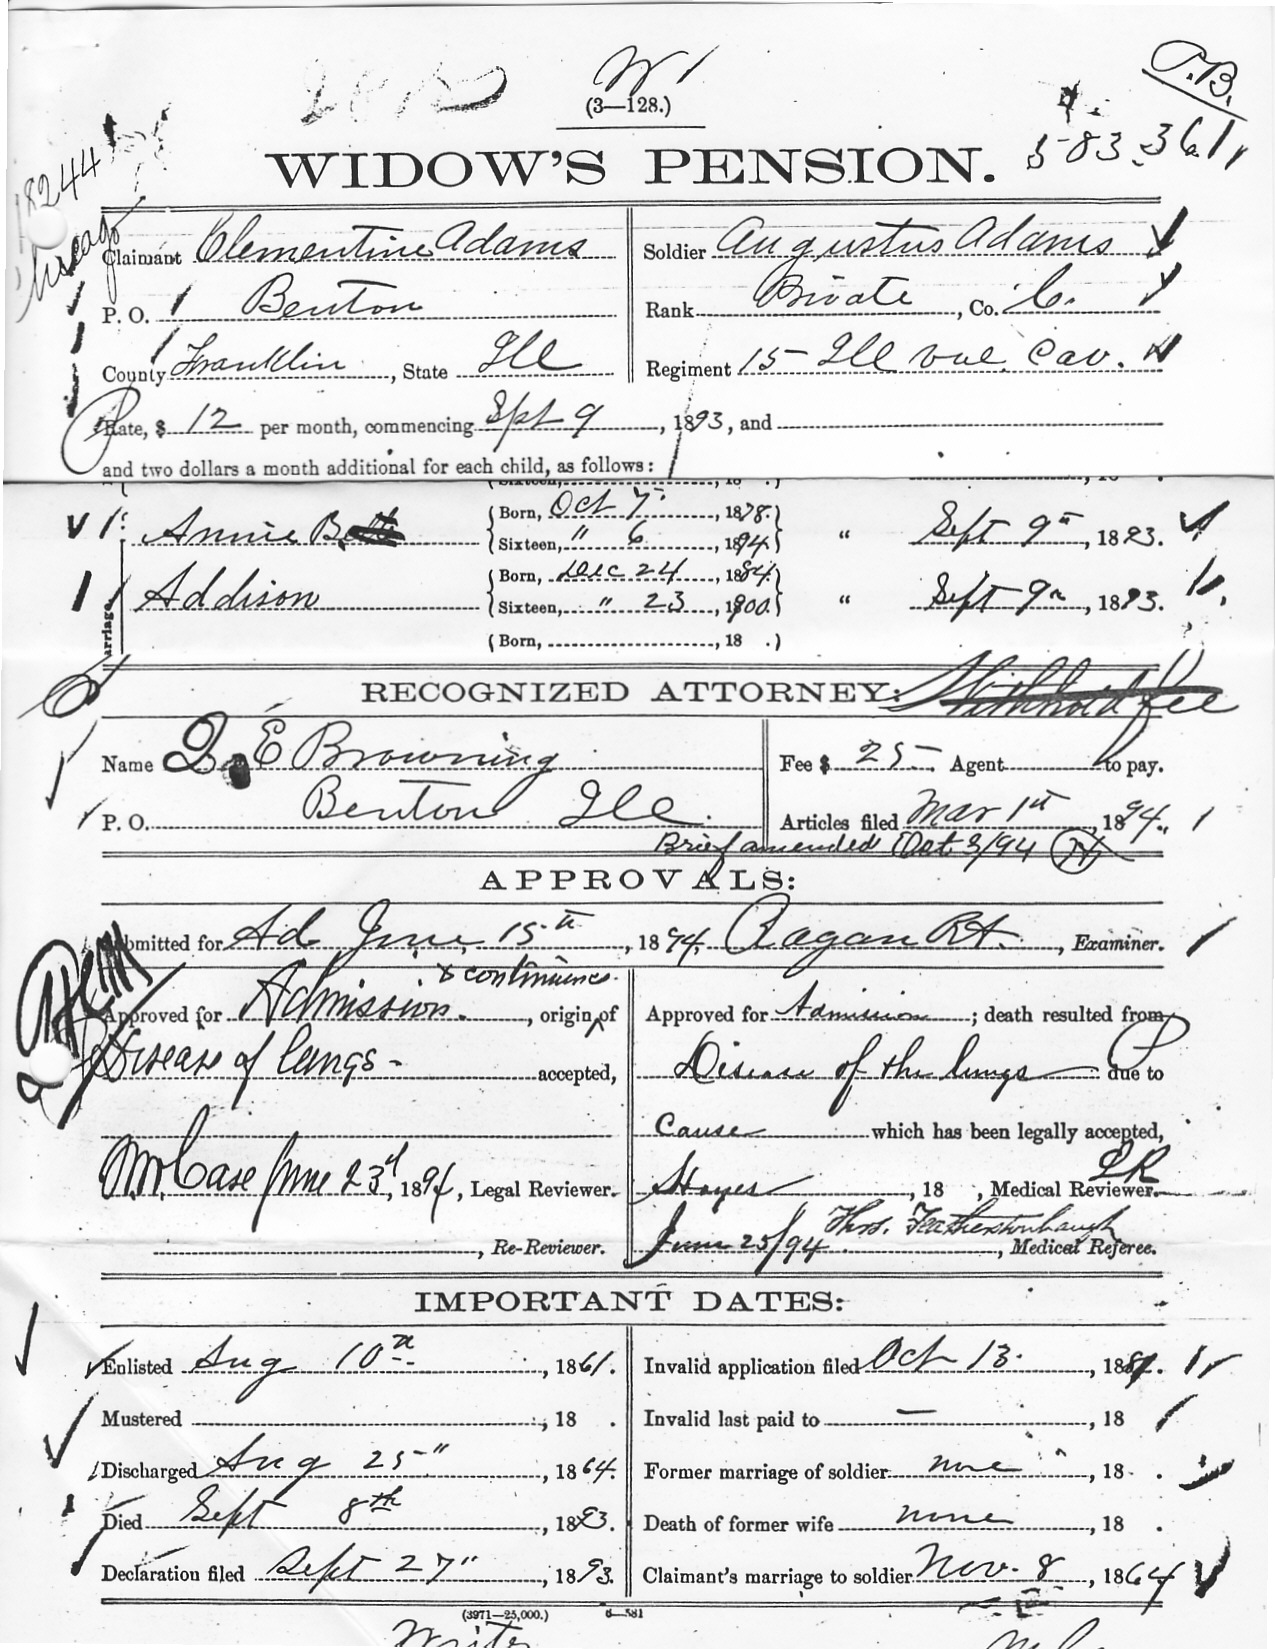 W 1
P.B.
(3—128.)
583.361
18244
Chicago
WIDOW'S PENSION.
Claimant Clementine Adams
Soldier Augustus Adams
P. O. Benton
Rank Private, Co. C.
County Franklin, State Ill
Regiment 15 Ill Vol. Cav.
Rate, $ 12 per month, commencing Spt 9, 1893, and
and two dollars a month additional for each child, as follows:
Sixteen, 18
Annie B. { Born, Oct 7, 1878. } " Sept 9th, 1893.
{ Sixteen, " 6, 1894. }
Addison { Born, Dec 24, 1884. } " Sept 9th, 1893.
{ Sixteen, " 23, 1900. }
( Born, , 18 .)
arriage.
RECOGNIZED ATTORNEY: Withhold fee
Name Q. E Browning
Fee $ 25 Agent to pay.
P. O. Benton Ill.
Articles filed Mar 1st, 1894.
Brief amended Oct 3/94
APPROVALS:
Submitted for Ad June 15th, 1894, Ragan Rt., Examiner.
& continuance
Approved for Admission., origin ^ of
Disease of lungs - accepted,
Approved for Admission; death resulted from
Disease of the lungs due to
cause which has been legally accepted,
Case June 23d, 1894, Legal Reviewer.
Hayes, 18 , Medical Reviewer.
, Re-Reviewer.
June 25/94 Thos. Featherstonhaugh, Medical Referee.
IMPORTANT DATES:
Enlisted Aug 10th, 1861.
Invalid application filed Oct 13., 188
Mustered , 18 .
Invalid last paid to —, 18
Discharged Aug 25", 1864.
Former marriage of soldier none, 18 .
Died Sept 8th, 1893.
Death of former wife none, 18 .
Declaration filed Sept 27", 1893.
Claimant's marriage to soldier Nov. 8, 1864
(3971—25,000.) 6—581
Write